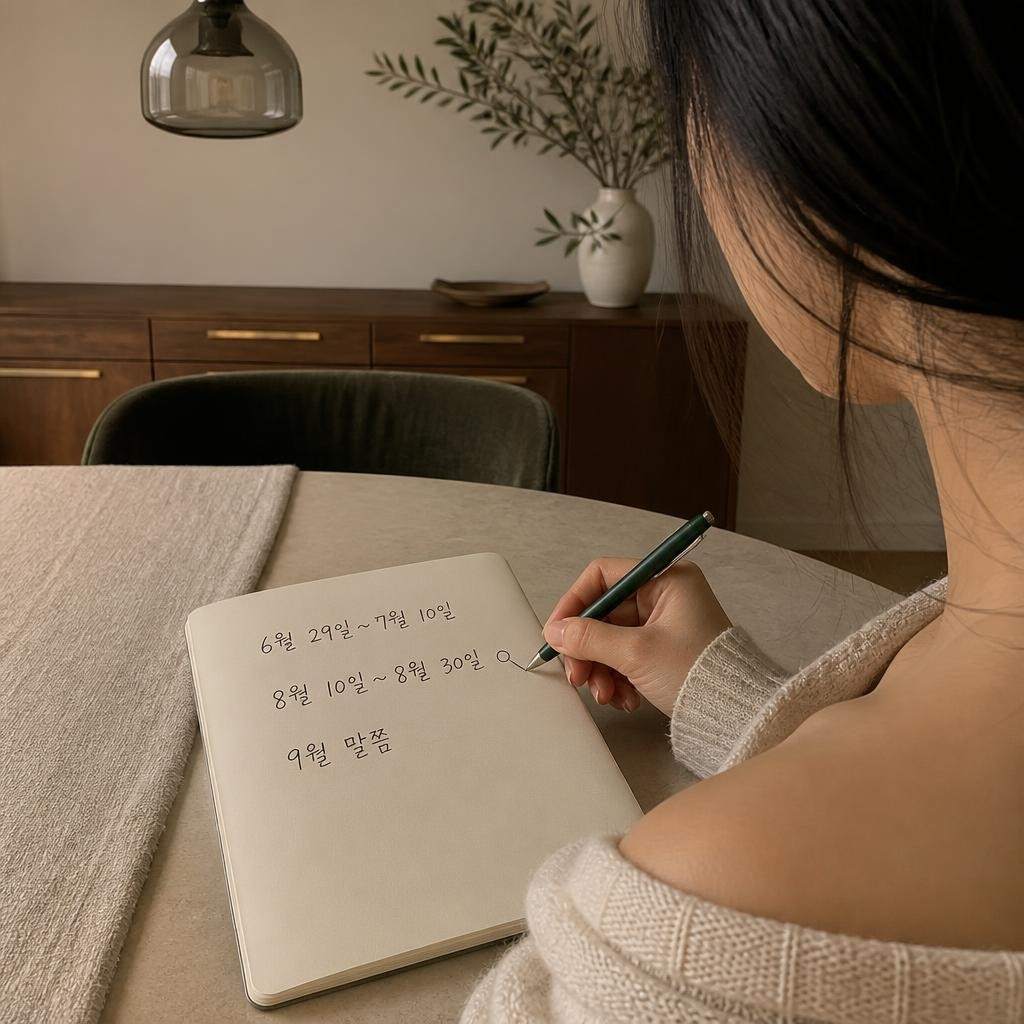 6월 29일~7월 10일
8월 10일~8월 30일
9월 말쯤